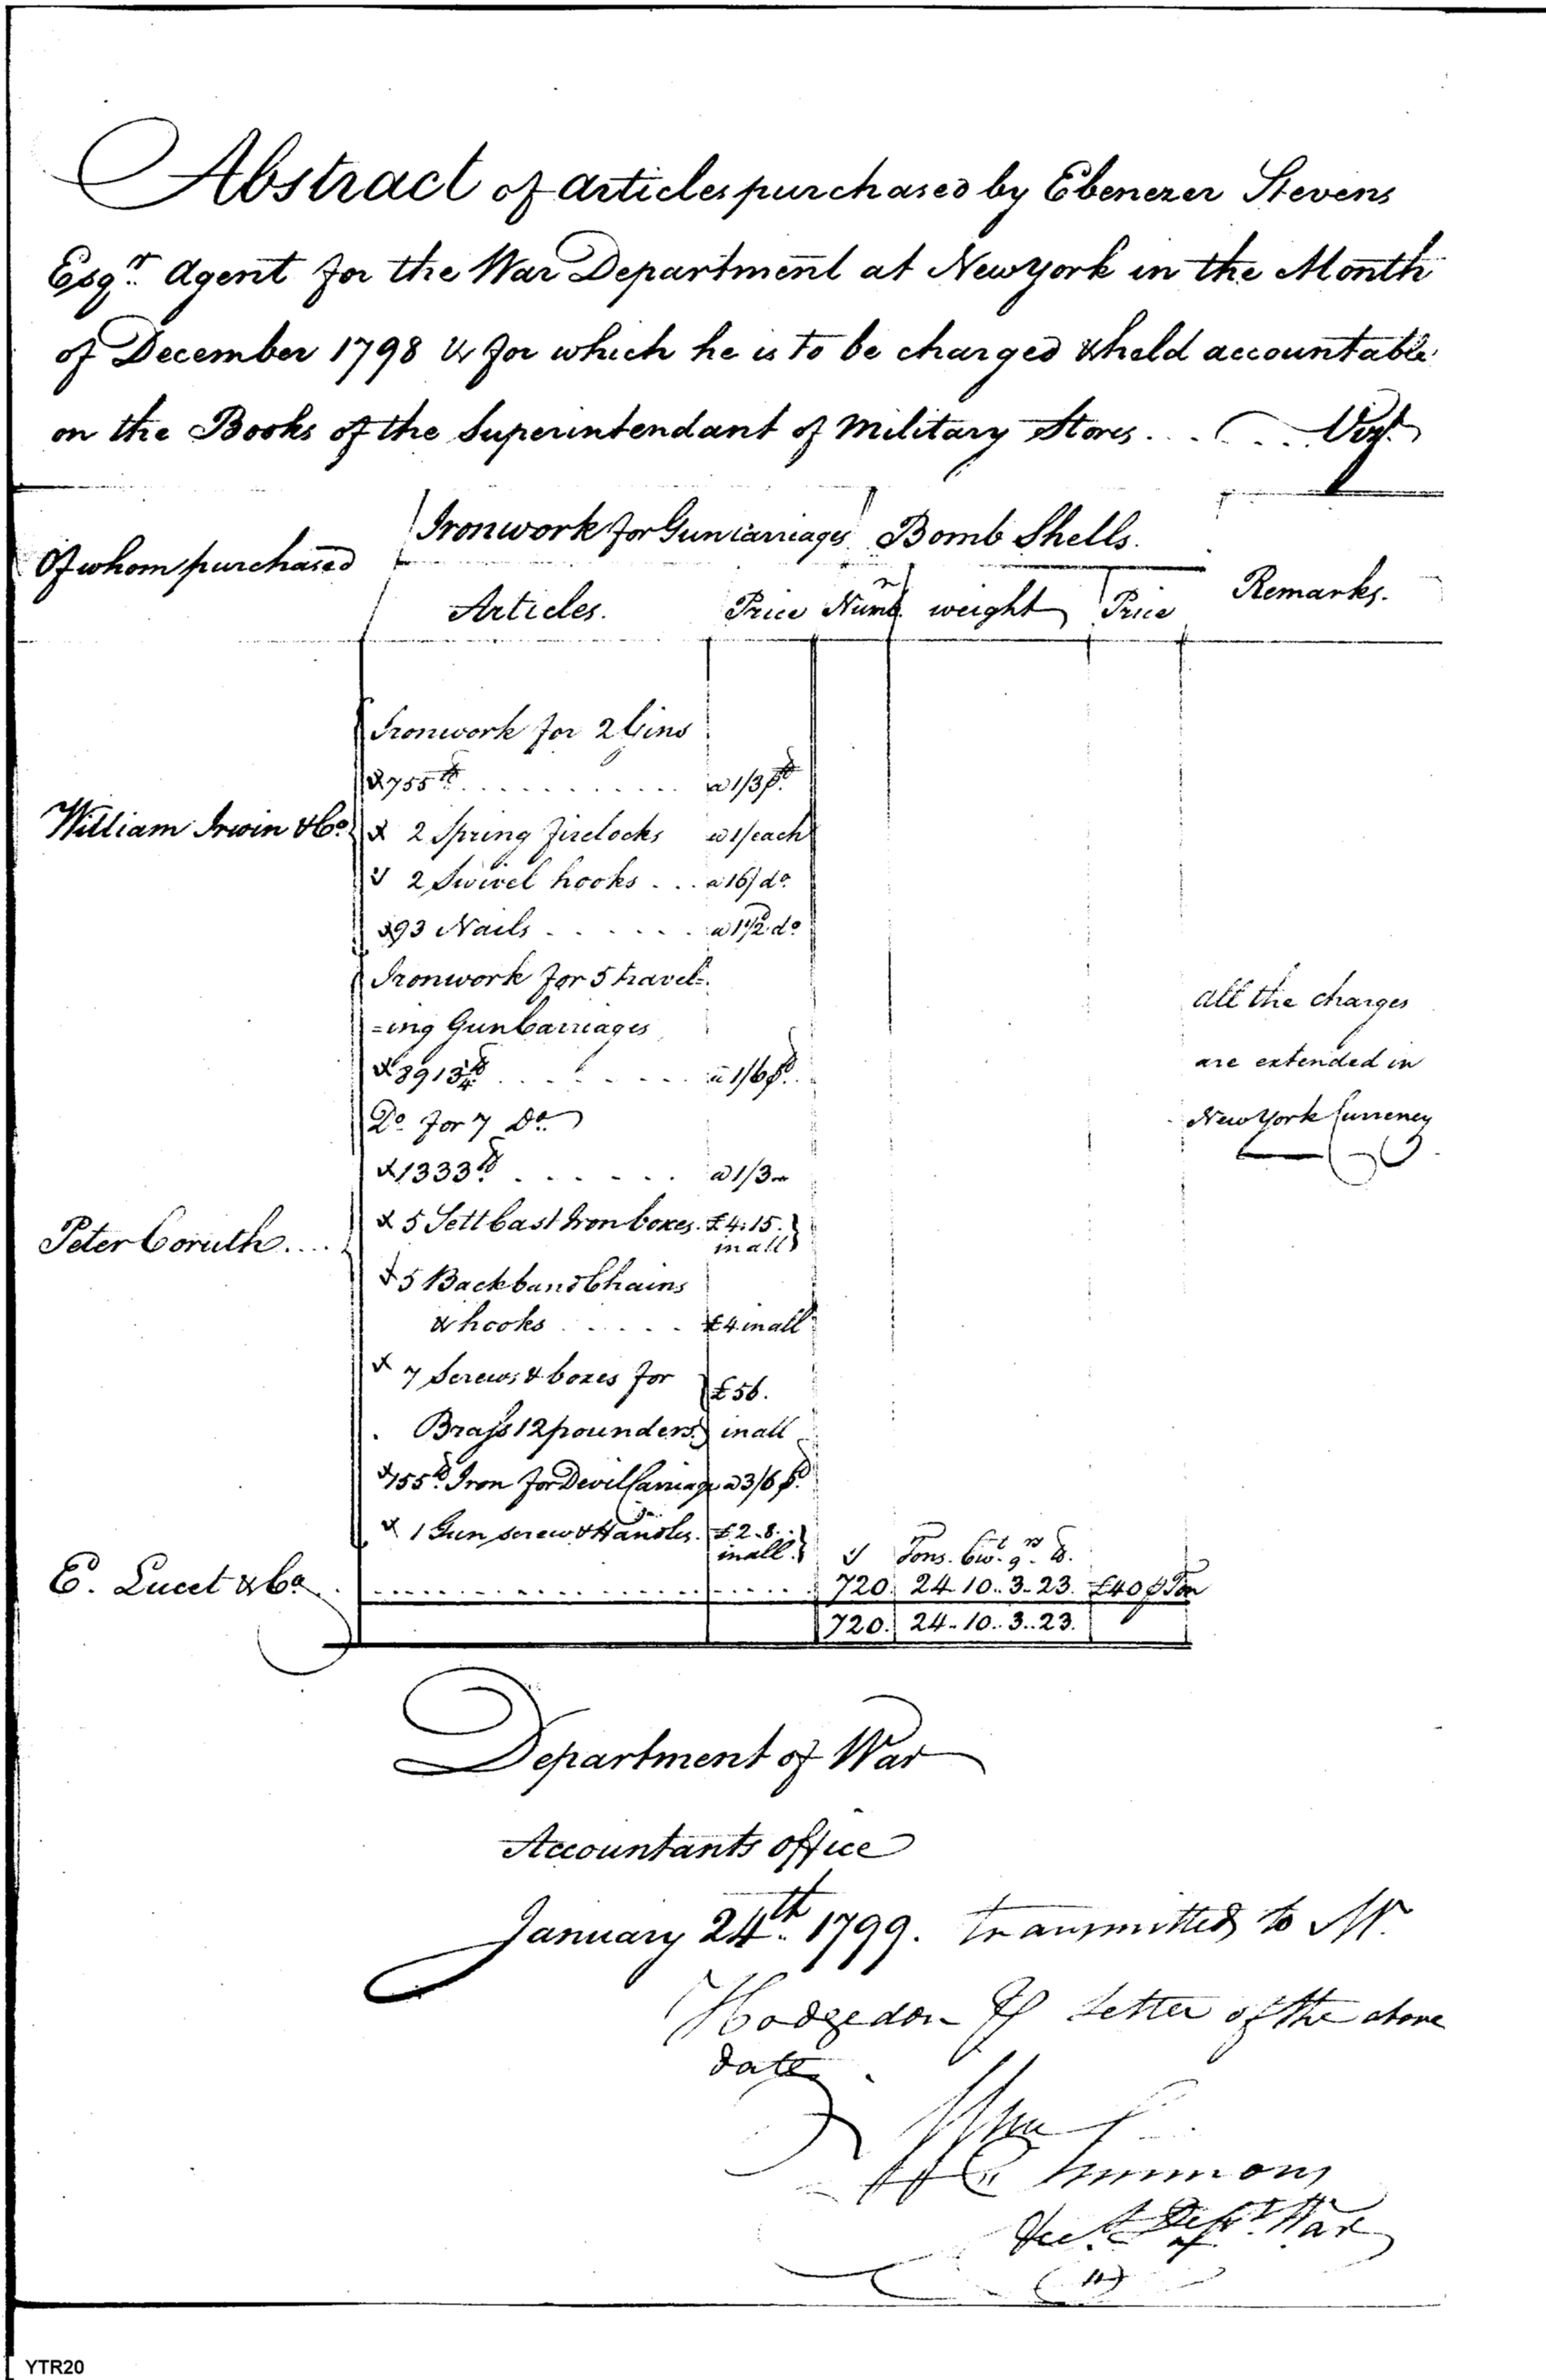 Abstract of articles purchased by Ebenezer Stevens
Esqr. Agent for the War Department at New york in the Month
of December 1798 & for which he is to be charged & held accountable
on the Books of the Superintendant of Military Stores . . . . . . Vizt.
Of whom purchased
Ironwork for Gun carriages Bomb Shells.
Remarks.
Articles. Price Numr. weight Price
Ironwork for 2 Gins
755 lb . . . . . . . . . . . a 1/3 ₱ lb
William Irwin & Co.
2 Spring firelocks a 1/ each
2 Swivel hooks . . . a 16/ do.
93 Nails . . . . . . a 1½d do
Ironwork for 5 travel=
=ing Gun Carriages
891¾ lb . . . . . . . . a 1/6 ₱ lb.
Do. for 7 Do.
1333 lb . . . . . . a 1/3
all the charges
are extended in
New York Currency
Peter Coruth....
5 Sett Cast Iron boxes. £4.15.
in all
5 Backband Chains
& hooks . . . . . £4 in all
7 Screws & boxes for £56.
Brass 12 pounders. in all
155 lb. Iron for Devil Carriage a 3/6 ₱ lb.
1 Gun screw & Handles. £2..8..
in all.
Tons. Cwt. qrs lb.
E. Lucet & Co. 720. 24 10.. 3.. 23. £40 ₱ Ton
720. 24.. 10.. 3.. 23.
Department of War
Accountants office
January 24th. 1799. transmitted to Mr.
Hodgedon ₱ letter of the above
date.
Wm Simmons
Acct. Dept. of War
YTR20